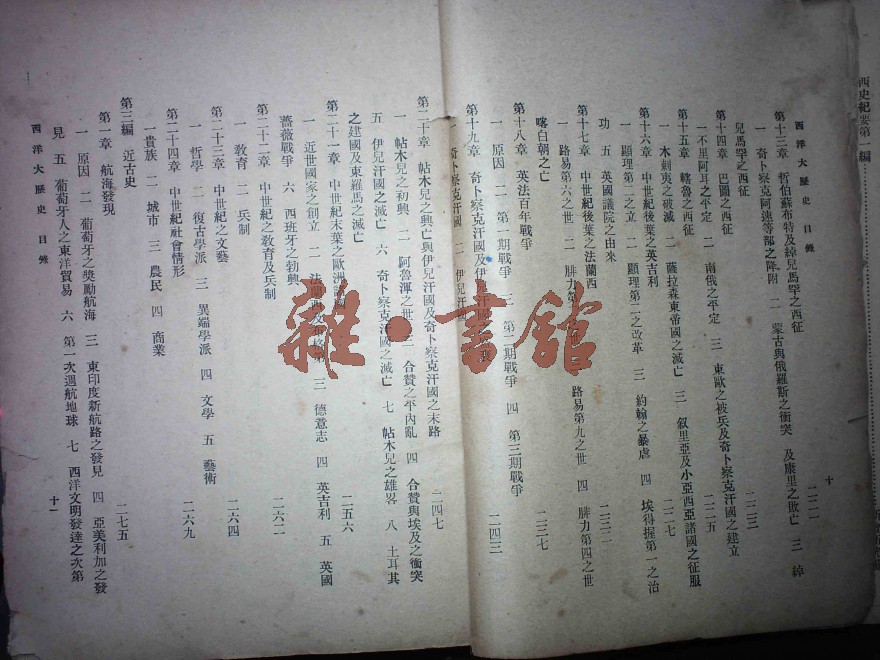 西史紀要第一編
西洋大歷史 目錄 十
第十三章 哲伯蘇布特及綽兒馬罕之西征 二二二
一 奇卜察克阿速等部之降附 二 蒙古與俄羅斯之衝突 及康里之敗亡 三 綽
兒馬罕之西征
第十四章 巴圖之西征 二二三
一 不里阿耳之平定 二 南俄之平定 三 東歐之被兵及奇卜察克汗國之建立
第十五章 轄魯之西征 二二五
一 木剌夷之破滅 二 薩拉森東帝國之滅亡 三 叙里亞及小亞西亞諸國之征服
第十六章 中世紀後葉之英吉利 二二七
一 顯理第二之立 二 顯理第二之改革 三 約翰之暴虐 四 埃得握第一之治
功 五 英國議院之由來
第十七章 中世紀後葉之法蘭西 二三二
一 路易第六之世 二 腓力第 路易第九之世 四 腓力第四之世
喀白朝之亡
第十八章 英法百年戰爭 二三七
一 原因 二 第一期戰爭 三 第二期戰爭 四 第三期戰爭
第十九章 奇卜察克汗國及伊兒汗國之 二四三
一 奇卜察克汗國 二 伊兒汗
第二十章 帖木兒之興亡與伊兒汗國及奇卜察克汗國之末路 二四七
一 帖木兒之初興 二 阿魯渾之世 三 合贊之平內亂 四 合贊與埃及之衝突
五 伊兒汗國之滅亡 六 奇卜察克汗國之滅亡 七 帖木兒之雄畧 八 土耳其
之建國及東羅馬之滅亡
第二十一章 中世紀末葉之歐洲 二五六
一 近世國家之創立 二 法蘭西及 三 德意志 四 英吉利 五 英國
薔薇戰爭 六 西班牙之勃興
第二十二章 中世紀之敎育及兵制 二六二
一 敎育 二 兵制
第二十三章 中世紀之文藝 二六四
一 哲學 二 復古學派 三 異端學派 四 文學 五 藝術
第二十四章 中世紀社會情形 二六九
一 貴族 二 城市 三 農民 四 商業
第三編 近古史
第一章 航海發現 二七五
一 原因 二 葡萄牙之獎勵航海 三 東印度新航路之發見 四 亞美利加之發
見 五 葡萄牙人之東洋貿易 六 第一次週航地球 七 西洋文明發達之次第
西洋大歷史 目錄 十一
雜·書館